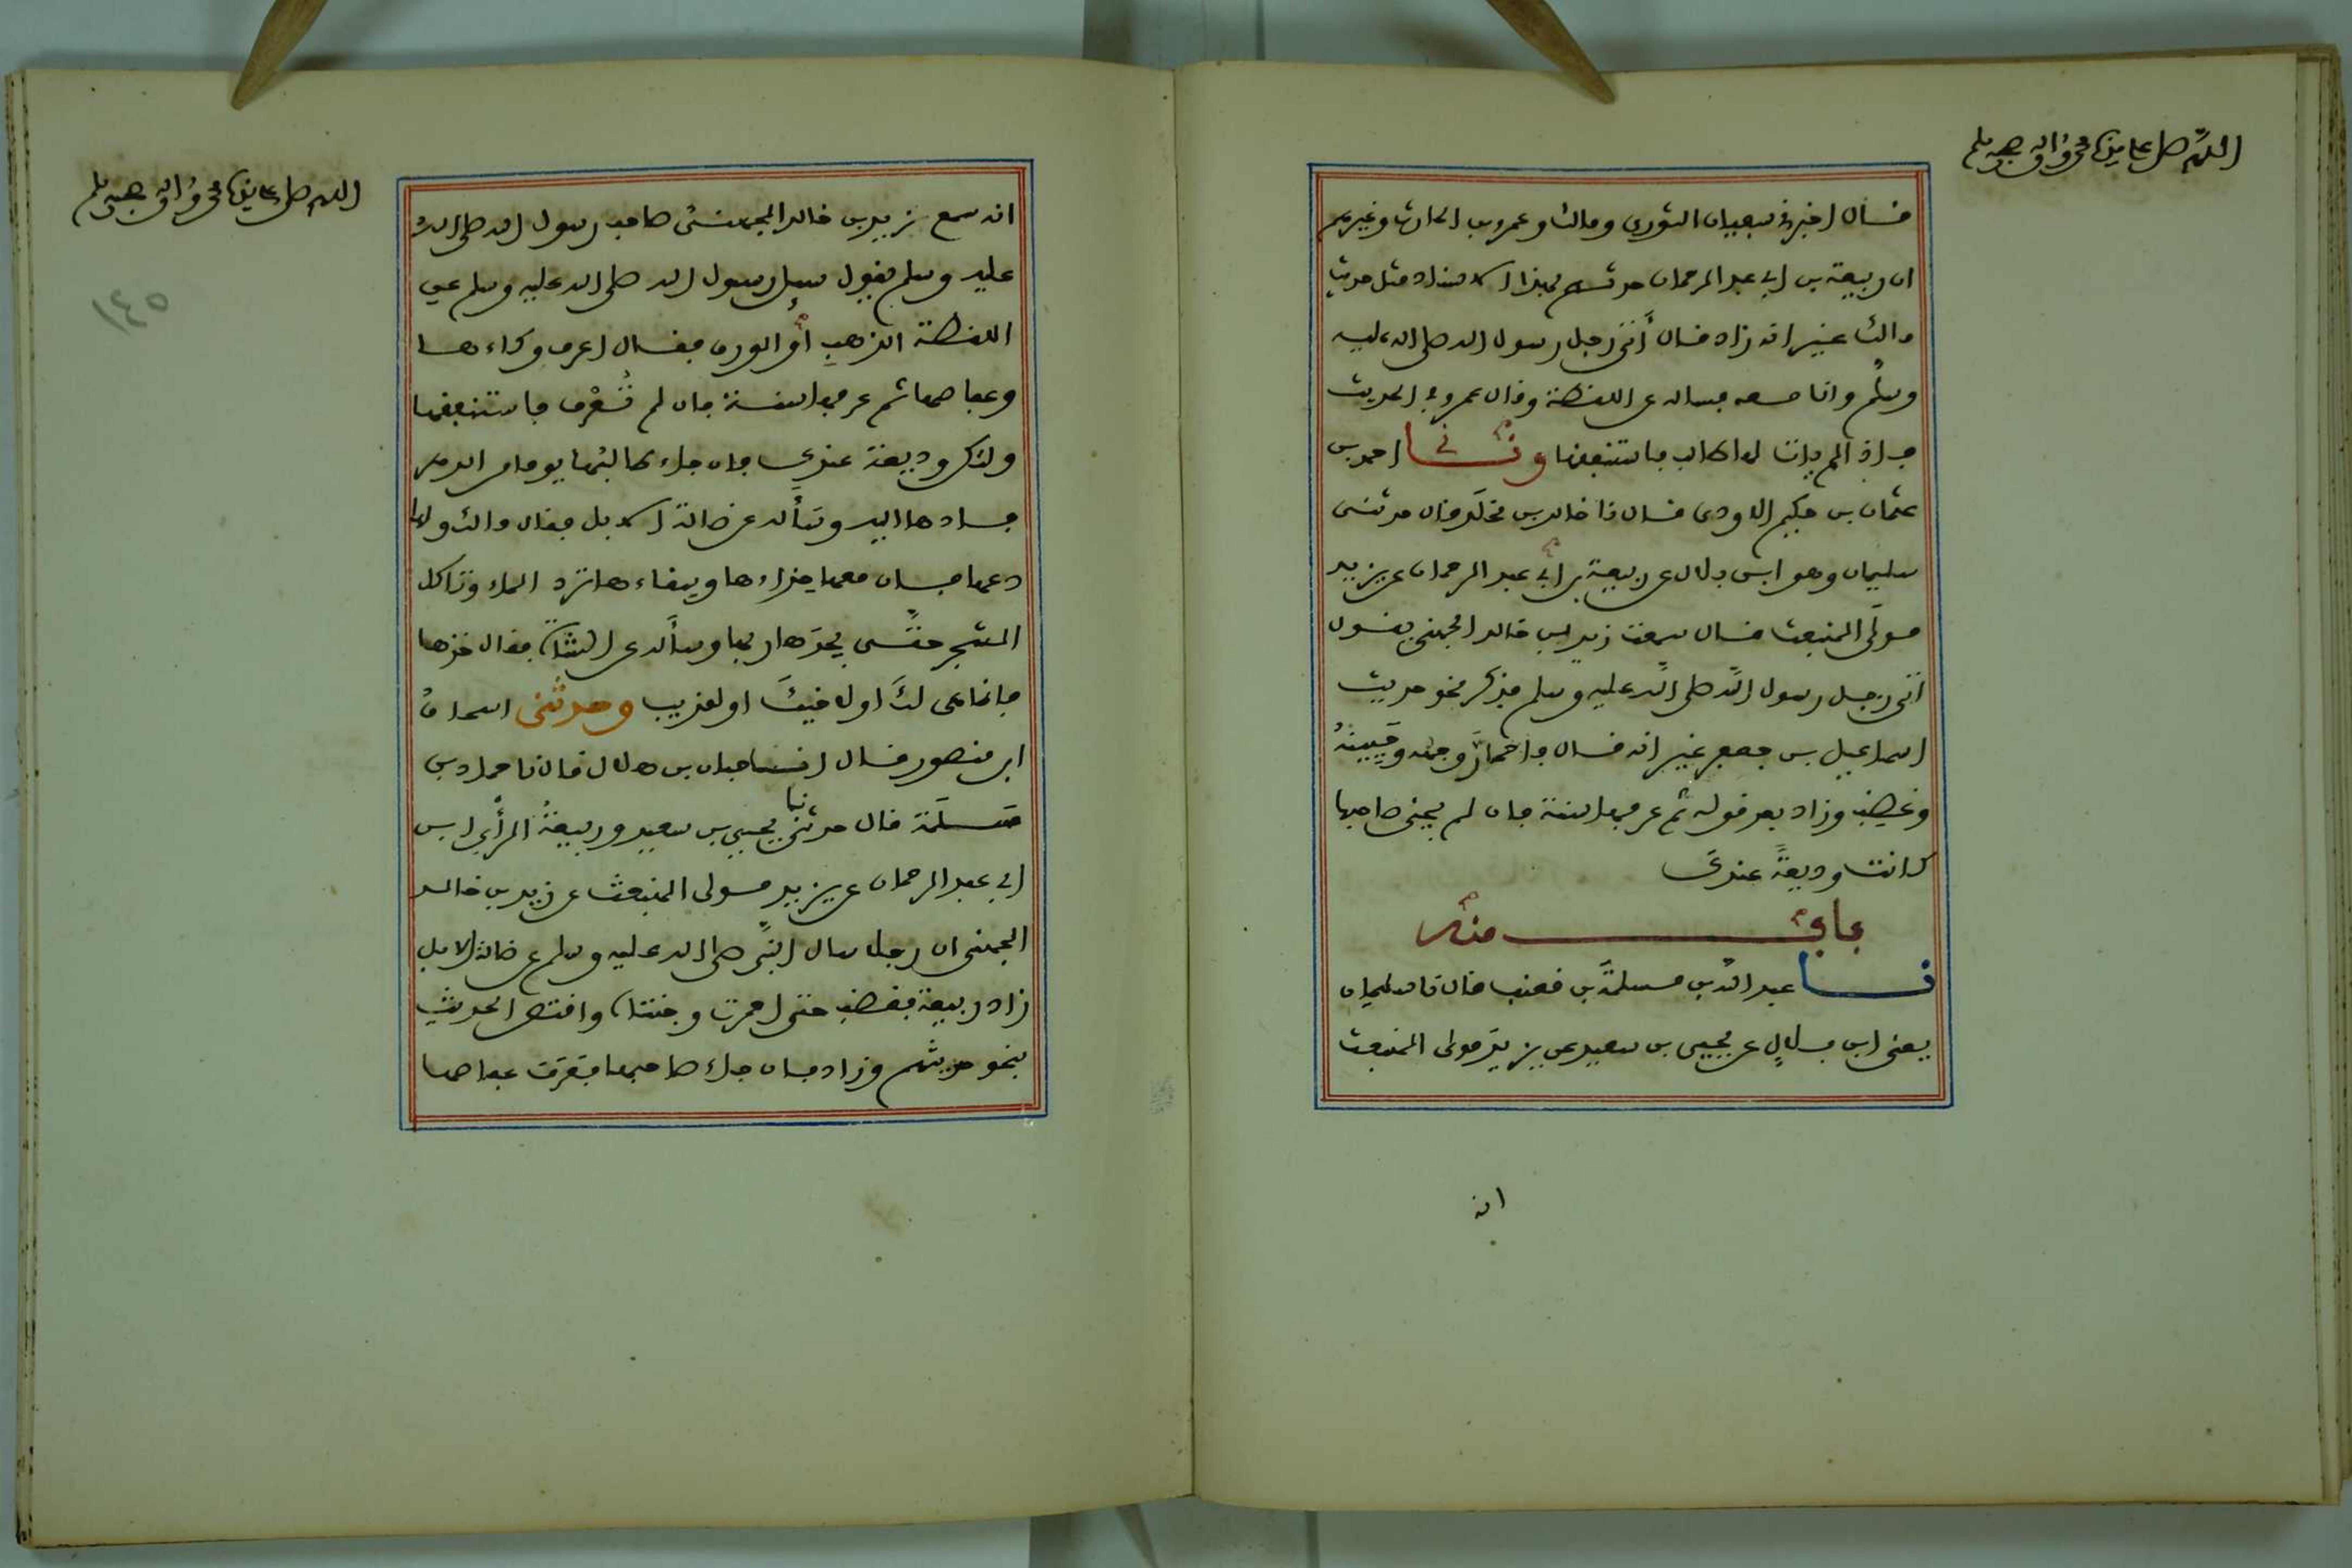 اللهم صل على سيدنا محمد واله وصحبه وسلم
قال اخبرني سفيان الثوري ومالك وعمرو بن الحارث وغيرهم
ان ربيعة بن ابي عبد الرحمان حدثهم بهذا الاسناد مثل حديث
مالك غير انه زاد قال أتى رجل رسول الله صلى الله عليه
وسلم وانا معه فساله عن اللقطة وقال عمرو في الحديث
فاذا لم يات لها طالب فاستنفقها وثني احمد بن
عثمان بن حكيم الاودي قال نا خالد بن مخلد قال حدثني
سليمان وهو ابن بلال عن ربيعة بن ابي عبد الرحمان عن يزيد
مولى المنبعث قال سمعت زيد بن خالد الجهني يقول
أتى رجل رسول الله صلى الله عليه وسلم فذكر نحو حديث
اسماعيل بن جعفر غير انه قال فاحمارّ وجهه وجبينهُ
وغضب وزاد بعد قوله ثم عرفها سنة فان لم يجئ صاحبها
كانت وديعةً عندك
باب منه
نا عبد الله بن مسلمة بن قعنب قال نا سليمان
يعني ابن بلال عن يحيى بن سعيد عن يزيد مولى المنبعث
انه
اللهم صل على سيدنا محمد واله وصحبه وسلم
١٤٥
انه سمع زيد بن خالد الجهني صاحب رسول الله صلى الله
عليه وسلم يقول سيل رسول الله صلى الله عليه وسلم عن
اللقطة الذهبِ أو الورق فقال اعرف وكاءها
وعفاصها ثم عرفها سنة فان لم تُعْرف فاستنفقها
ولتكن وديعة عندك فان جاء طالبها يوما من الدهر
فادها اليه وسأله عن ضالة الابل فقال مالك ولها
دعها فان معها حذاءها وسقاءها ترد الماء وتاكل
الشجر حتى يجدَها ربها وسأله عن الشاة فقال خذها
فانما هي لكَ او لاخيكَ او للذيب وحدثني اسحاق
ابن منصور قال انا حبان بن هلال قال نا حماد بن
سلمة قال حدثني نا يحيى بن سعيد وربيعةُ الرأي ابن
ابي عبد الرحمان عن يزيد مولى المنبعث عن زيد بن خالد
الجهني ان رجلا سال النبي صلى الله عليه وسلم عن ضالة الابل
زاد ربيعة فغضب حتى احمرت وجنتاه واقتص الحديث
بنحو حديثهم وزاد فان جاء صاحبها فعرف عفاصها